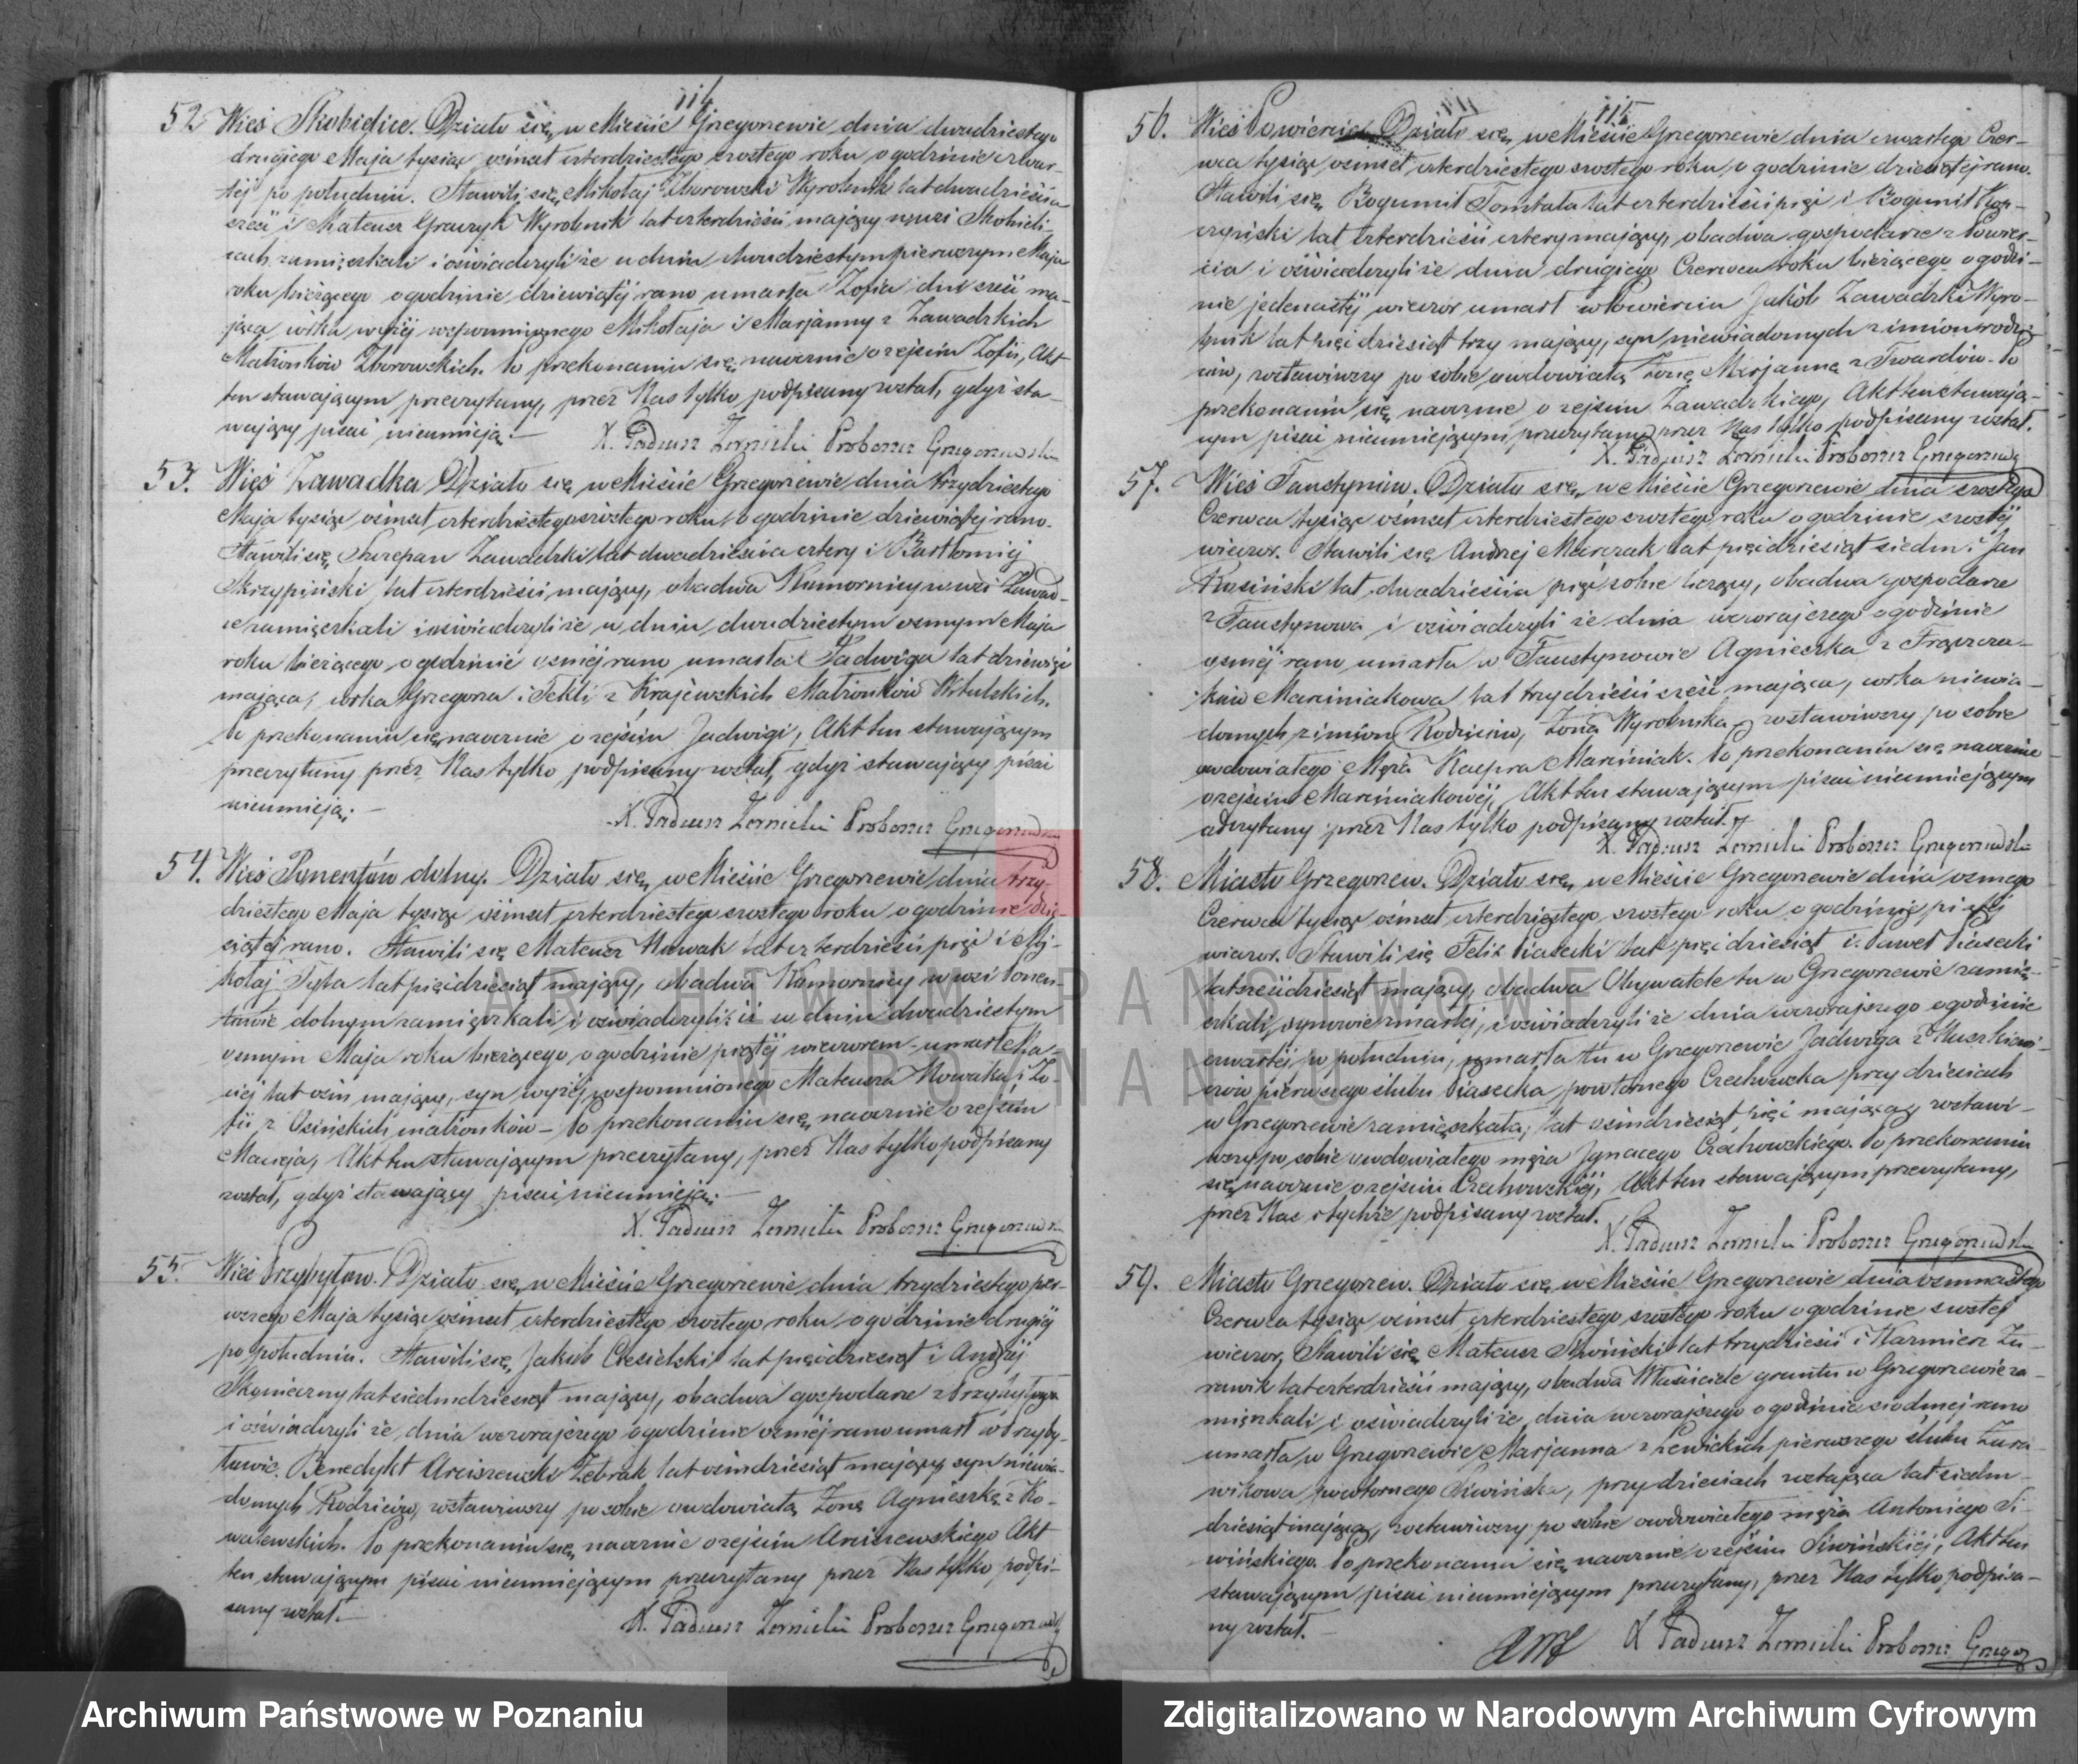 114
52. Wieś Skobielice. Działo się w Mieście Grzegorzewie dnia dwudziestego
drugiego Maja tysiąc ośmset czterdziestego szostego roku, o godzinie czwar-
tej po południu. Stawili się Mikołaj Zborowski Wyrobnik lat dwadzieścia
sześć i Mateusz Gawryk Wyrobnik lat czterdzieści mający w wsi Skobieli-
cach zamięszkali i oświadczyli że w dniu dwudziestym pierwszym Maja
roku bieżącego o godzinie dziewiątej rano umarła Zofia dni sześć ma-
jąca córka wyżej wspomnionego Mikołaja i Marjanny z Zawadzkich
Małżonków Zborowskich. Po przekonaniu się naocznie o zejściu Zofii, Akt
ten stawającym przeczytany, przez Nas tylko podpisany został, gdyż sta-
wający pisać nieumieją.
X. Tadeusz Proboszcz Grzegorzewski
53. Wieś Zawadka Działo się w Mieście Grzegorzewie dnia trzydziestego
Maja tysiąc ośmset czterdziestego szostego roku, o godzinie dziewiątej rano.
Stawili się Szczepan Zawadzki lat dwadzieścia cztery i Bartłomiej
Skrzypiński lat czterdzieści mający, obadwa Komornicy w wsi Zawad-
ce zamięszkali i oświadczyli że w dniu dwudziestym osmym Maja
roku bieżącego o godzinie osmej rano umarła Jadwiga lat dziewięć
mająca, córka Grzegorza i Tekli z Krajewskich Małżonków
Po przekonaniu się naocznie o zejściu Jadwigi, Akt ten stawającym
przeczytany przez Nas tylko podpisany został, gdyż stawający pisać
nieumieją.
X. Tadeusz Proboszcz Grzegorzewski
54. Wieś Ponentów dolny. Działo się w Mieście Grzegorzewie dnia trzy-
dziestego Maja tysiąc ośmset czterdziestego szostego roku o godzinie dzie-
siątej rano. Stawili się Mateusz Nowak lat czterdzieści pięć i Mi-
kołaj Tyka lat pięćdziesiąt mający, obadwa Komornicy w wsi Ponen-
towie dolnym zamięszkali i oświadczyli iż w dniu dwudziestym
osmym Maja roku bieżącego, o godzinie piątej wieczorem umarł Ma-
ciej lat ośm mający, syn wyżej wspomnionego Mateusza Nowaka i Zo-
fii z Osińskich małżonków. Po przekonaniu się naocznie o zejściu
Macieja, Akt ten stawającym przeczytany, przez Nas tylko podpisany
został, gdyż stawający pisać nieumieją.
X. Tadeusz Proboszcz Grzegorzewski
55. Wieś Przybyłow. Działo się w Mieście Grzegorzewie dnia trzydziestego pier-
wszego Maja tysiąc ośmset czterdziestego szostego roku, o godzinie drugiej
po południu. Stawili się Jakub Ciesielski lat pięćdziesiąt i Andrzej
Skowieczny lat siedmdziesiąt mający, obadwa gospodarze z Przybyłowa
i oświadczyli że dnia wczorajszego o godzinie osmej rano umarł w Przyby-
łowie Benedykt Arciszewski Żebrak lat ośmdziesiąt mający syn niewia-
domych Rodziców, zostawiwszy po sobie owdowiałą Zonę Agnieszkę z Ko-
walewskich. Po przekonaniu się naocznie o zejściu Arciszewskiego Akt
ten stawającym pisać nieumiejącym przeczytany przez Nas tylko podpi-
sany został.
X. Tadeusz Proboszcz Grzegorzewski
115
56. Wieś Powiercie Działo się w Mieście Grzegorzewie dnia czwartego Czer-
wca tysiąc ośmset czterdziestego szostego roku, o godzinie dziesiątej rano.
Stawili się Bogumił Tomtala lat czterdzieści pięć i Bogumił Kop-
czyński lat czterdzieści cztery mający, obadwa gospodarze z Powier-
cia i oświadczyli że dnia drugiego Czerwca roku bieżącego o godzi-
nie jedenastej wieczór umarł w Powierciu Jakób Zawadzki Wyro-
bnik lat pięćdziesiąt trzy mający, syn niewiadomych z imion rodzi-
ców, zostawiwszy po sobie owdowiałą Zonę Marjannę z Twardów. Po
przekonaniu się naocznie o zejściu Zawadzkiego, Akt ten stawają-
cym pisać nieumiejącym, przeczytany przez Nas tylko podpisany został.
X. Tadeusz Proboszcz Grzegorzewski
57. Wieś Faustynów. Działo się w Mieście Grzegorzewie dnia szostego
Czerwca tysiąc ośmset czterdziestego szostego roku o godzinie szostej
wieczor. Stawili się Andrzej Marczak lat pięćdziesiąt siedm i Jan
Krasiński lat dwadzieścia pięć sobie liczący, obadwa gospodarze
z Faustynowa i oświadczyli że dnia wczorajszego o godzinie
osmej rano umarła w Faustynowie Agnieszka z Frąszcza-
ków Marciniakowa lat trzydzieści sześć mająca, córka niewia-
domych z imion Rodziców, Zona Wyrobnika, zostawiwszy po sobie
owdowiałego Męża Kacpra Marciniak. Po przekonaniu się naocznie
o zejściu Marciniakowej, Akt ten stawającym pisać nieumiejącym
odczytany przez Nas tylko podpisany został.
X. Tadeusz Proboszcz Grzegorzewski
58. Miasto Grzegorzew. Działo się w Mieście Grzegorzewie dnia osmego
Czerwca tysiąc ośmset czterdziestego szostego roku o godzinie piątej
wieczor. Stawili się Felix Piasecki lat pięćdziesiąt i Paweł Piasecki
lat sześćdziesiąt mający, obadwa Obywatele tu w Grzegorzewie zamię-
szkali, synowie zmarłej, i oświadczyli że dnia wczorajszego o godzinie
czwartej po południu, umarła tu w Grzegorzewie Jadwiga z
pierwszego ślubu Piasecka, powtórnego Czechowska przy dzieciach
w Grzegorzewie zamięszkała, lat ośmdziesiąt pięć mająca, zostawi-
wszy po sobie owdowiałego męża Ignacego Czechowskiego. Po przekonaniu
się naocznie o zejściu Czechowskiej, Akt ten stawającym przeczytany,
przez Nas i tychże podpisany został.
X. Tadeusz Proboszcz Grzegorzewski
59. Miasto Grzegorzew. Działo się w Mieście Grzegorzewie dnia osmnastego
Czerwca tysiąc ośmset czterdziestego szostego roku o godzinie szostej
wieczor, Stawili się Mateusz Siwiński lat trzydzieści i Kazmierz Żu-
rawik lat czterdzieści mający, obadwa Właściciele gruntu w Grzegorzewie za-
mięszkali i oświadczyli że dnia wczorajszego o godzinie siodmej rano
umarła w Grzegorzewie Marjanna z Lewickich pierwszego ślubu Żura-
wikowa powtornego Siwińska, przy dzieciach zostająca lat siedm-
dziesiąt mająca, zostawiwszy po sobie owdowiałego męża Antoniego Si-
wińskiego. Po przekonaniu się naocznie o zejściu Siwińskiej, Akt ten
stawającym pisać nieumiejącym przeczytany, przez Nas tylko podpisa-
ny został.
X Tadeusz Proboszcz Grzegorz
ARCHIWUM PAŃSTWOWE
W POZNANIU
Archiwum Państwowe w Poznaniu
Zdigitalizowano w Narodowym Archiwum Cyfrowym